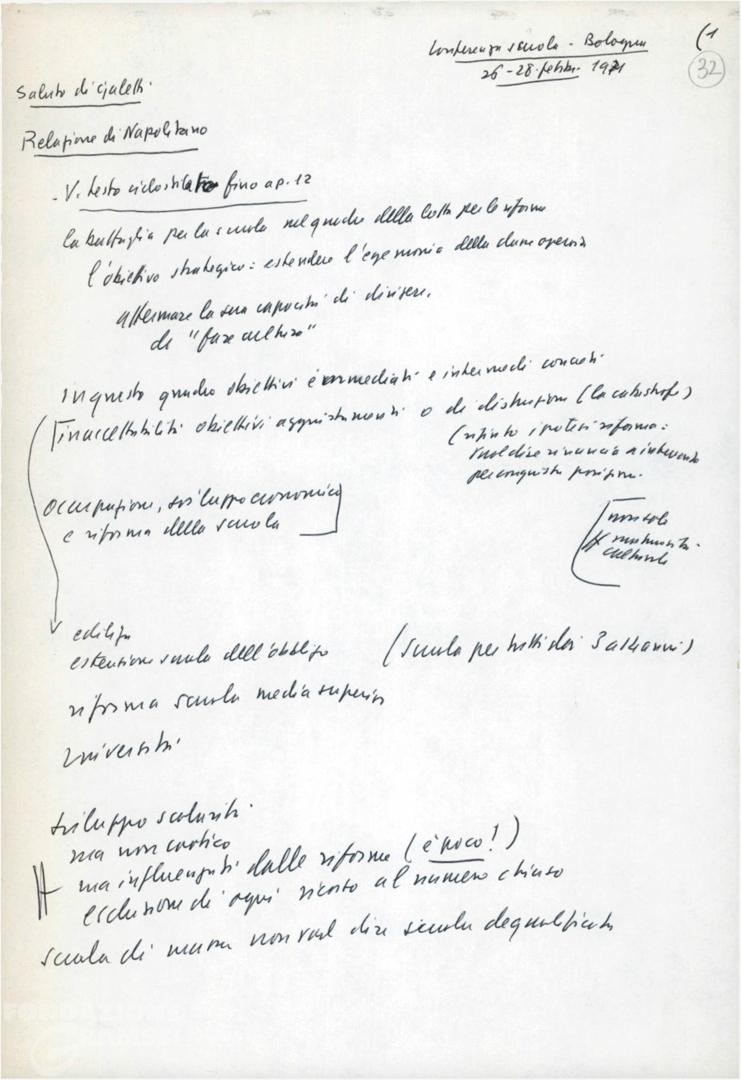 Conferenza scuola - Bologna (1
26-28 febbr. 1971 32
Saluto di Galetti
Relazione di Napolitano
- V. testo ciclostilato fino a p. 12
la battaglia per la scuola nel quadro della lotta per le riforme
l'obiettivo strategico: estendere l'egemonia della classe operaia
affermare la sua capacità di dirigere,
di "fare cultura"
in questo quadro obiettivi immediati e intermedi concreti
inaccettabilità obiettivi aggiustamenti o di distruzione (la catastrofe)
(rifiuto ipotesi riforma:
vuol dire rinuncia a intervento
per conquista posizioni.
occupazione, sviluppo economico
e riforma della scuola
non solo
culturale
edilizia
estensione scuola dell'obbligo (scuola per tutti dai 3 ai anni)
riforma scuola media superiore
università
sviluppo scolarità
ma non caotico
ma influenzati dalle riforme (è poco!)
esclusione di ogni ricorso al numero chiuso
scuola di massa non vuol dire scuola dequalificata
FONDAZIONE
GRAMSCI